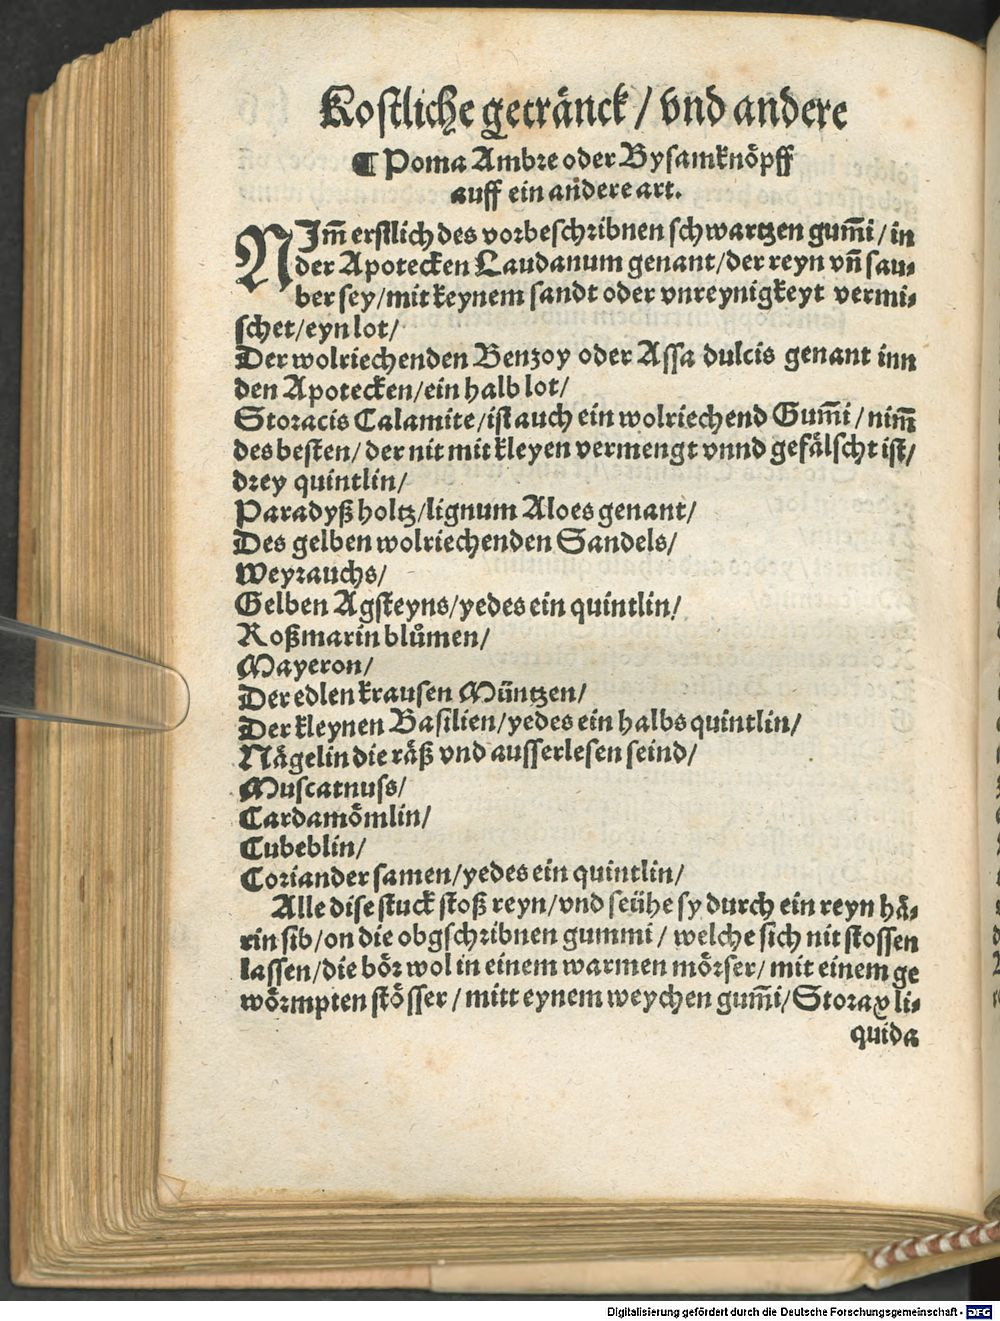 Kostliche getränck / vnd andere
¶ Poma Ambre oder Bysamknöpff
auff ein andere art.
NIm̃ erstlich des vorbeschribnen schwartzen gum̃i / in
der Apotecken Laudanum genant / der reyn vñ sau⸗
ber sey / mit keynem sandt oder vnreynigkeyt vermi⸗
schet / eyn lot /
Der wolriechenden Benzoy oder Assa dulcis genant inn
den Apotecken / ein halb lot /
Storacis Calamite / ist auch ein wolriechend Gum̃i / nim̃
des besten / der nit mit kleyen vermengt vnnd gefälscht ist /
drey quintlin /
Paradyß holtz / lignum Aloes genant /
Des gelben wolriechenden Sandels /
Weyrauchs /
Gelben Agsteyns / yedes ein quintlin /
Roßmarin blůmen /
Mayeron /
Der edlen krausen Müntzen /
Der kleynen Basilien / yedes ein halbs quintlin /
Nägelin die räß vnd ausserlesen seind /
Muscatnuss /
Cardamömlin /
Cubeblin /
Coriander samen / yedes ein quintlin /
Alle dise stuck stoß reyn / vnd seühe sy durch ein reyn hä⸗
rin sib / on die obgschribnen gummi / welche sich nit stossen
lassen / die bör wol in einem warmen mörser / mit einem ge
wörmpten stösser / mitt eynem weychen gum̃i / Storax li⸗
quida
Digitalisierung gefördert durch die Deutsche Forschungsgemeinschaft - DFG